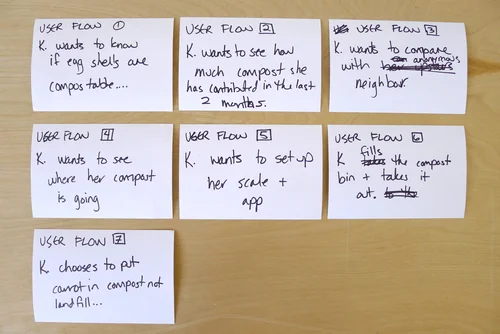 USER FLOW 1
K. wants to know
if egg shells are
compostable....
USER FLOW 2
K. wants to see how
much compost she
has contributed in the last
2 months.
USER FLOW 3
K. wants to compare
with an anonymous
neighbour.
USER FLOW 4
K. wants to see
where her compost
is going
USER FLOW 5
K. wants to set up
her scale +
app
USER FLOW 6
K fills the compost
bin + takes it
out.
USER FLOW 7
K. chooses to put
carrot in compost not
landfill...